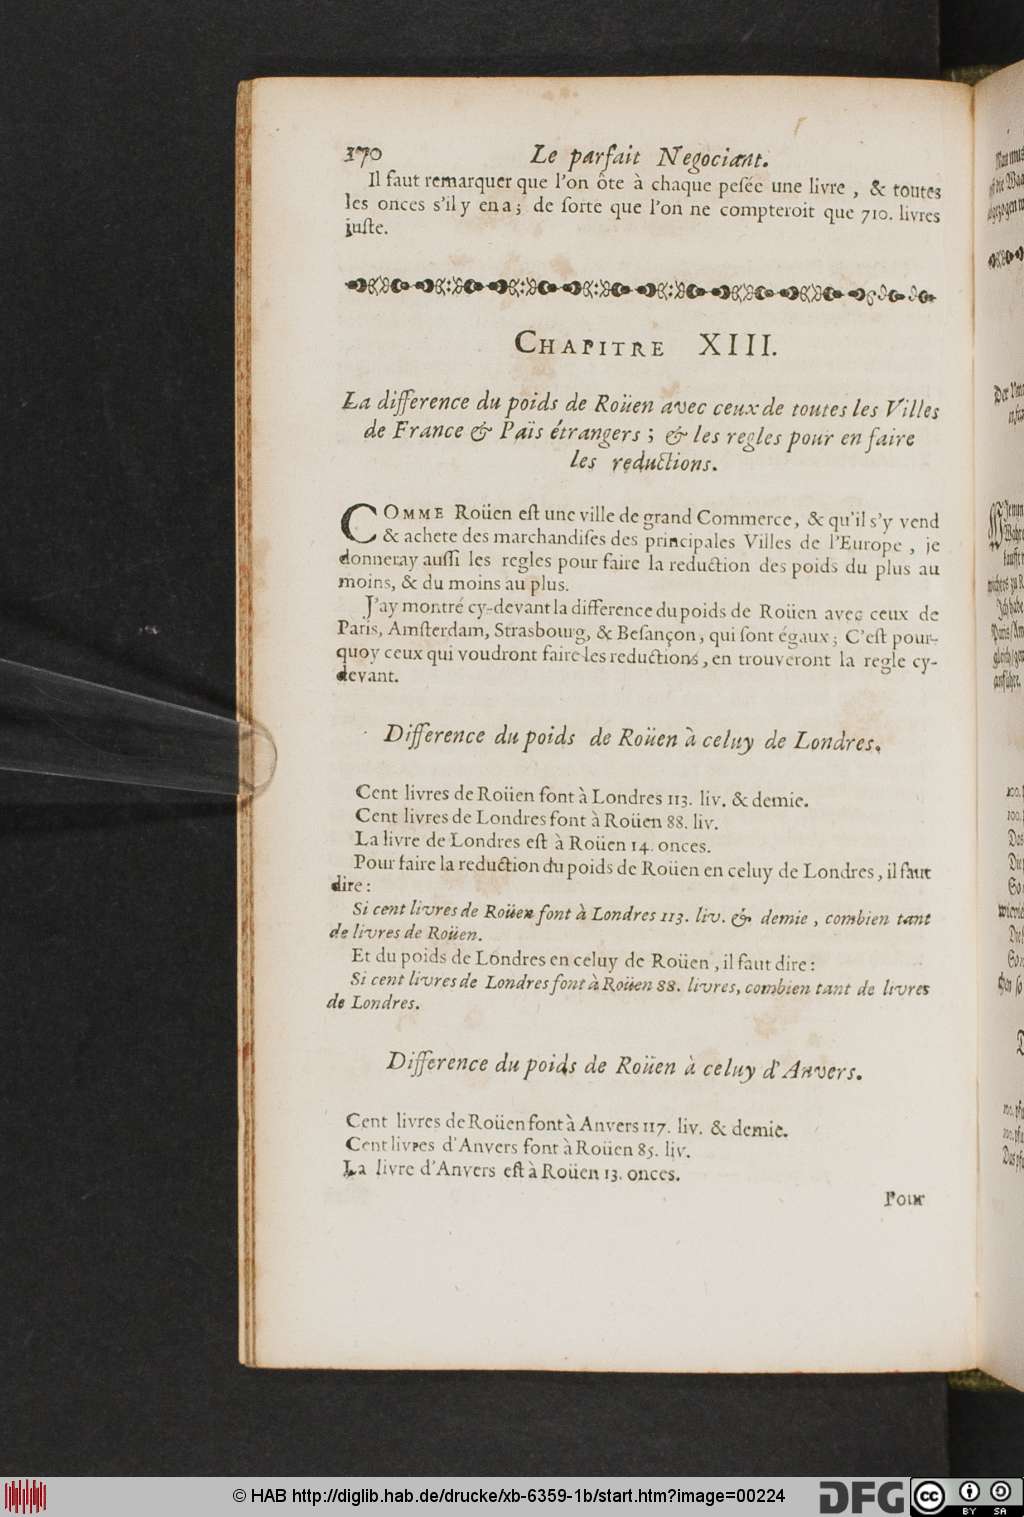 170 Le parfait Negociant.
Il faut remarquer que l'on ôte à chaque pesée une livre, & toutes
les onces s'il y en a; de sorte que l'on ne compteroit que 710. livres
juste.
CHAPITRE XIII.
La difference du poids de Roüen avec ceux de toutes les Villes
de France & Païs étrangers; & les regles pour en faire
les reductions.
COMME Roüen est une ville de grand Commerce, & qu'il s'y vend
& achete des marchandises des principales Villes de l'Europe, je
donneray aussi les regles pour faire la reduction des poids du plus au
moins, & du moins au plus.
J'ay montré cy-devant la difference du poids de Roüen avec ceux de
Paris, Amsterdam, Strasbourg, & Besançon, qui sont égaux; C'est pour-
quoy ceux qui voudront faire les reductions, en trouveront la regle cy-
devant.
Difference du poids de Roüen à celuy de Londres.
Cent livres de Roüen font à Londres 113. liv. & demie.
Cent livres de Londres font à Roüen 88. liv.
La livre de Londres est à Roüen 14. onces.
Pour faire la reduction du poids de Roüen en celuy de Londres, il faut
dire:
Si cent livres de Roüen font à Londres 113. liv. & demie, combien tant
de livres de Roüen.
Et du poids de Londres en celuy de Roüen, il faut dire:
Si cent livres de Londres font à Roüen 88. livres, combien tant de livres
de Londres.
Difference du poids de Roüen à celuy d'Anvers.
Cent livres de Roüen font à Anvers 117. liv. & demie.
Cent livres d'Anvers font à Roüen 85. liv.
La livre d'Anvers est à Roüen 13. onces.
Pour
© HAB http://diglib.hab.de/drucke/xb-6359-1b/start.htm?image=00224
DFG
cc BY SA